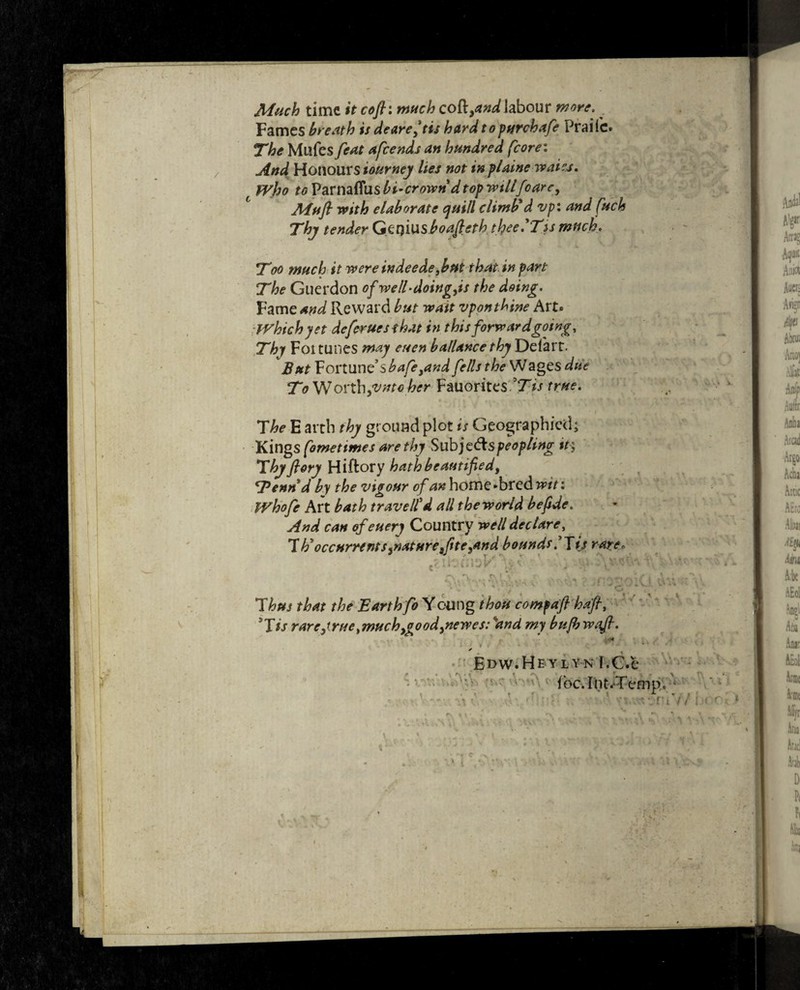 Much time it cost: much cost, and labour more.
Fames breath is deare, 'tis hard to purchase Praise.
The Muses seat ascends an hundred score:
And Honours iourney lies not in plaine waies.
Who to Parnassus bi-crown'd top will soare,
Must with elaborate quill climb'd vp: and such
Thy tender Genius boasteth thee. 'Tis much.
Too much it were indeede, but that in part
The Guerdon of well-doing, is the doing.
Fame and Reward but wait vpon thine Art.
Which yet deserues that in this forward going,
Thy Fortunes may euen ballance thy Desart.
But Fortune's base, and sells the Wages due
To Worth, vnto her Fauorites. 'Tis true.
The Earth thy ground plot is Geographied;
Kings sometimes are thy Subjects peopling it;
Thy story History hath beautified,
Penn'd by the vigour of an home-bred wit:
Whose Art hath travell'd all the world beside.
And can of euery Country well declare,
Th' occurrents, nature, site, and bounds. 'Tis rare.
Thus that the Earth so Young thou compast hast,
'Tis rare, true, much, good, newes: and my bush wast.
EDW. HEYLYN I.C.è
soc. Int. Temp.